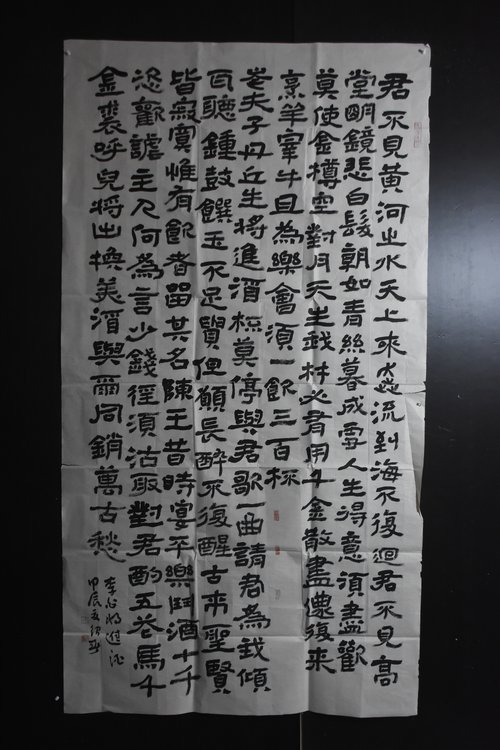 君不見黃河之水天上來奔流到海不復迴君不見高
堂明鏡悲白髮朝如青絲暮成雪人生得意須盡歡
莫使金樽空對月天生我材必有用千金散盡還復來
烹羊宰牛且為樂會須一飲三百杯
岑夫子丹丘生將進酒杯莫停與君歌一曲請君為我傾
耳聽鍾鼓饌玉不足貴但願長醉不復醒古來聖賢
皆寂寞惟有飲者留其名陳王昔時宴平樂斗酒十千
恣歡謔主人何為言少錢徑須沽取對君酌五花馬千
金裘呼兒將出換美酒與爾同銷萬古愁
李白將進酒
甲辰